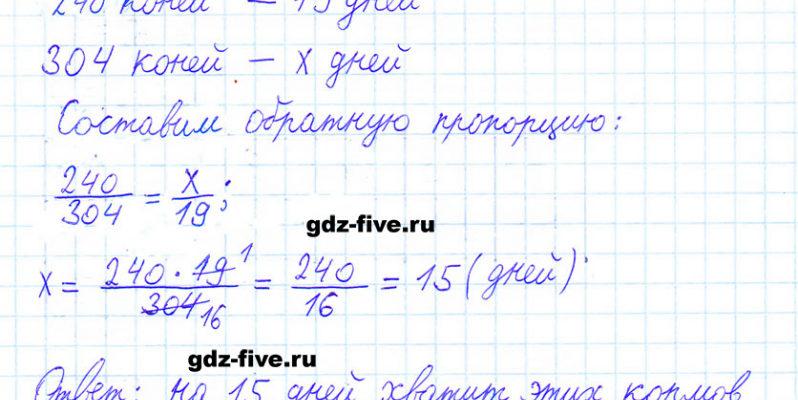 240 коней – 19 дней
304 коней – x дней
Составим обратную пропорцию:
240/304 = x/19;
gdz-five.ru
x = 240 · 19 1/304 16 = 240/16 = 15 (дней)
gdz-five.ru
Ответ: на 15 дней хватит этих кормов